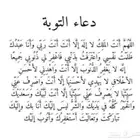 دعاء التوبة
اللَّهُمَّ أَنْتَ الْمَلِكُ لَا إِلَهَ إِلَّا أَنْتَ أَنْتَ رَبِّي وَأَنَا عَبْدُكَ
ظَلَمْتُ نَفْسِي وَاعْتَرَفْتُ بِذَنْبِي فَاغْفِرْ لِي ذُنُوبِي جَمِيعًا
إِنَّهُ لَا يَغْفِرُ الذُّنُوبَ إِلَّا أَنْتَ وَاهْدِنِي لِأَحْسَنِ
الْأَخْلَاقِ لَا يَهْدِي لِأَحْسَنِهَا إِلَّا أَنْتَ وَاصْرِفْ عَنِّي
سَيِّئَهَا لَا يَصْرِفُ عَنِّي سَيِّئَهَا إِلَّا أَنْتَ لَبَّيْكَ وَسَعْدَيْكَ
وَالْخَيْرُ كُلُّهُ فِي يَدَيْكَ وَالشَّرُّ لَيْسَ إِلَيْكَ أَنَا بِكَ وَإِلَيْكَ
تَبَارَكْتَ وَتَعَالَيْتَ أَسْتَغْفِرُكَ وَأَتُوبُ إِلَيْكَ